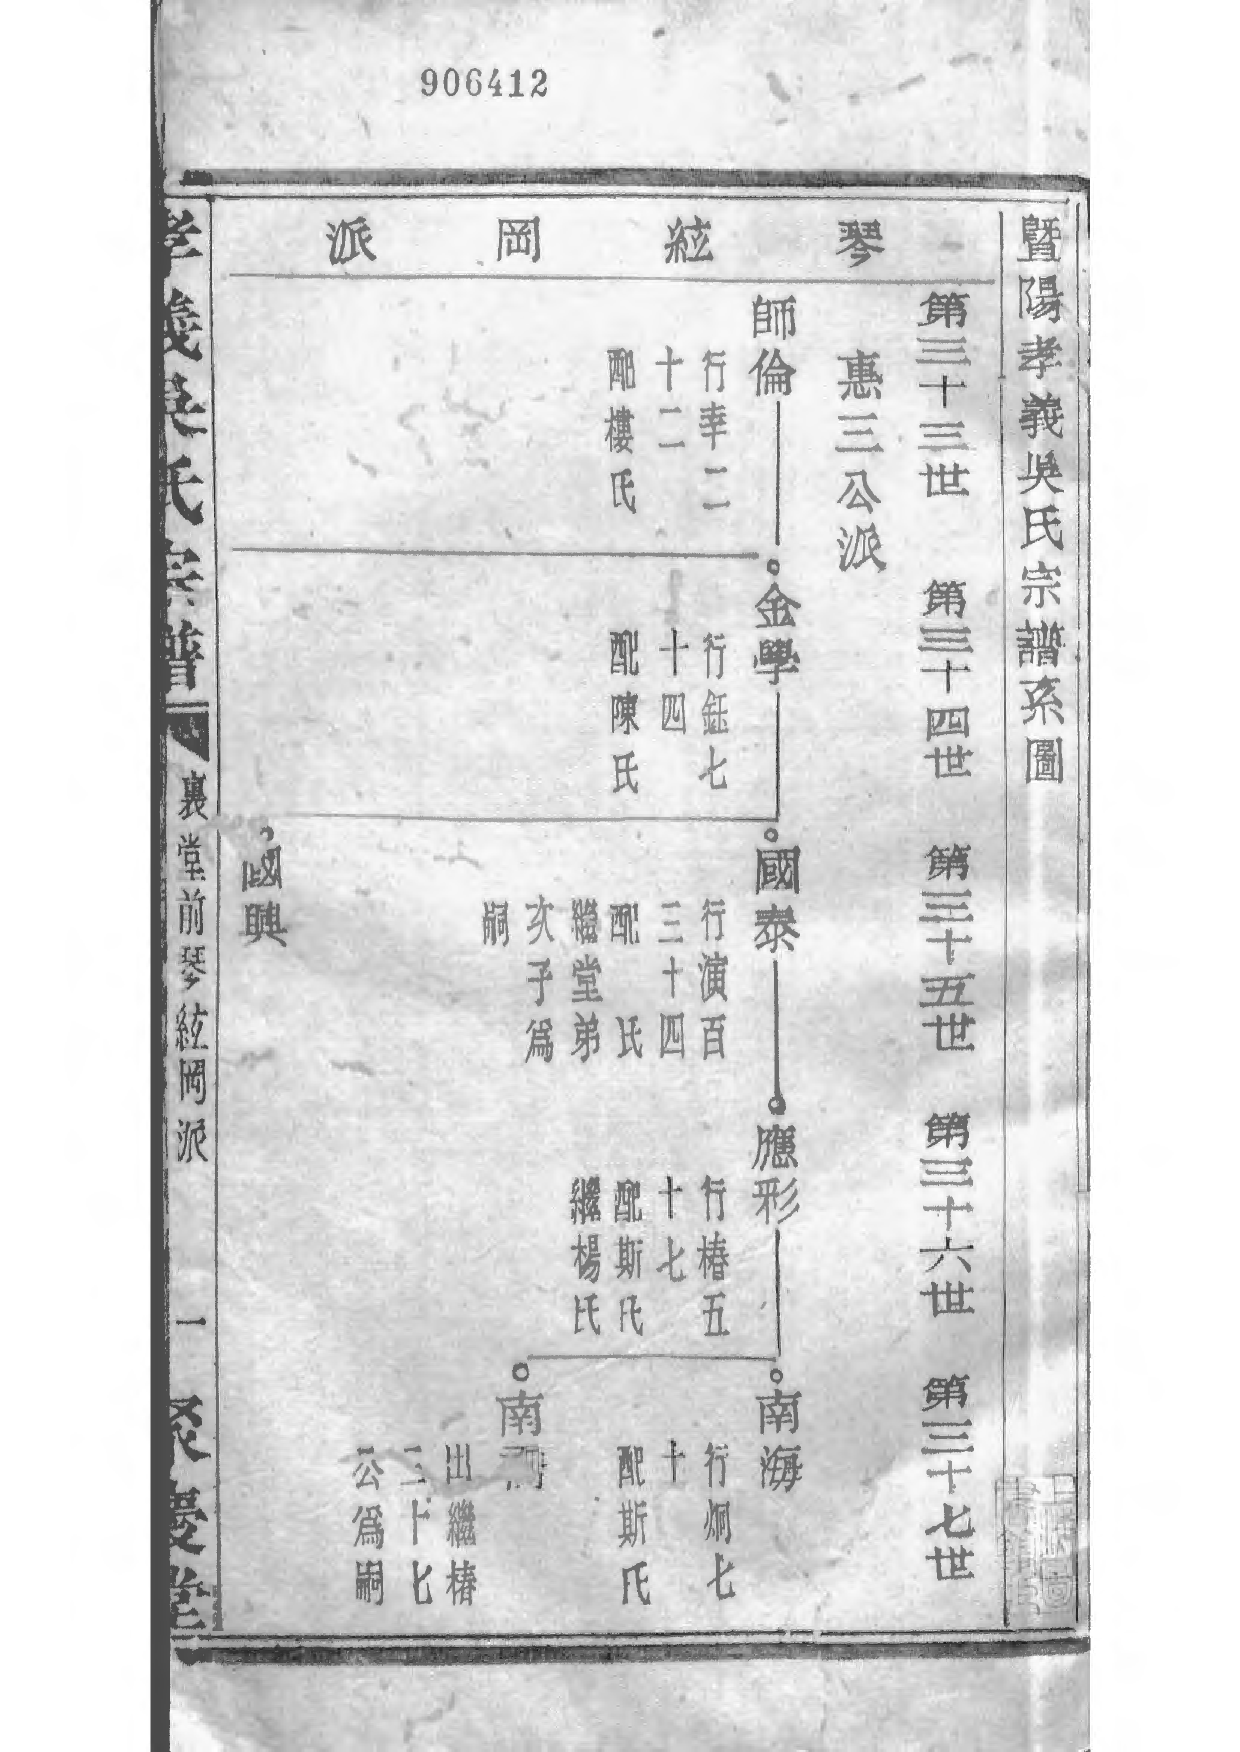 906412
暨陽孝義吳氏宗譜系圖
琴絃岡派
第三十三世
第三十四世
第三十五世
第三十六世
第三十七世
惠三公派
師倫
行幸二
十二
配樓氏
金學
行鈺七
十四
配陳氏
國泰
行演百
三十四
配 氏
繼堂弟
次子爲
嗣
國興
應彩
行椿五
十七
配斯氏
繼楊氏
南海
行炯七
十
配斯氏
南
出繼椿
三十七
公爲嗣
孝義吳氏宗譜
裏堂前琴絃岡派
一
聚慶堂